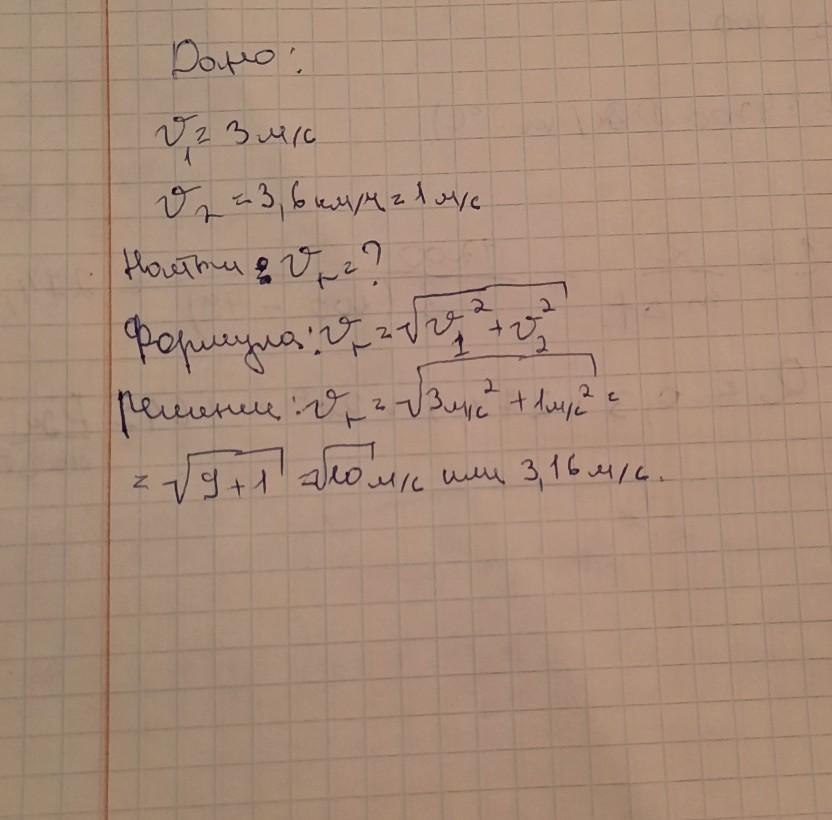 Дано:
v₁ = 3 м/с
v₂ = 3,6 км/ч = 1 м/с
Найти: vᵣ = ?
Формула: vᵣ = √(v₁² + v₂²)
Решение: vᵣ = √(3м/с² + 1м/с²) =
= √(9+1) = √10 м/с или 3,16 м/с.